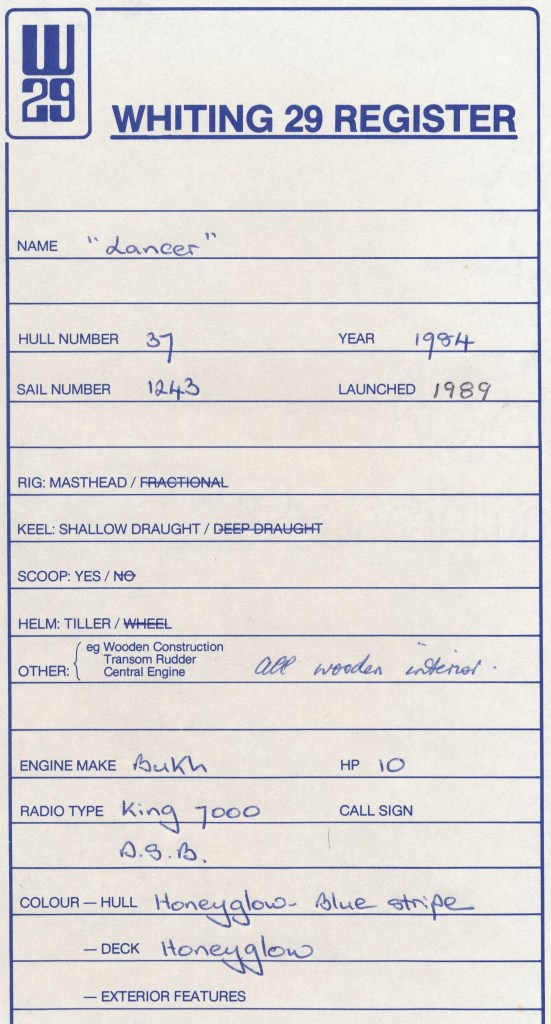 W
29
WHITING 29 REGISTER
NAME "Lancer"
HULL NUMBER 37 YEAR 1984
SAIL NUMBER 1243 LAUNCHED 1989
RIG: MASTHEAD / FRACTIONAL
KEEL: SHALLOW DRAUGHT / DEEP DRAUGHT
SCOOP: YES / NO
HELM: TILLER / WHEEL
eg Wooden Construction
Transom Rudder
OTHER: Central Engine all wooden interior.
ENGINE MAKE Bukh HP 10
RADIO TYPE King 7000 CALL SIGN
D.S.B.
COLOUR — HULL Honeyglow - Blue stripe
— DECK Honeyglow
— EXTERIOR FEATURES